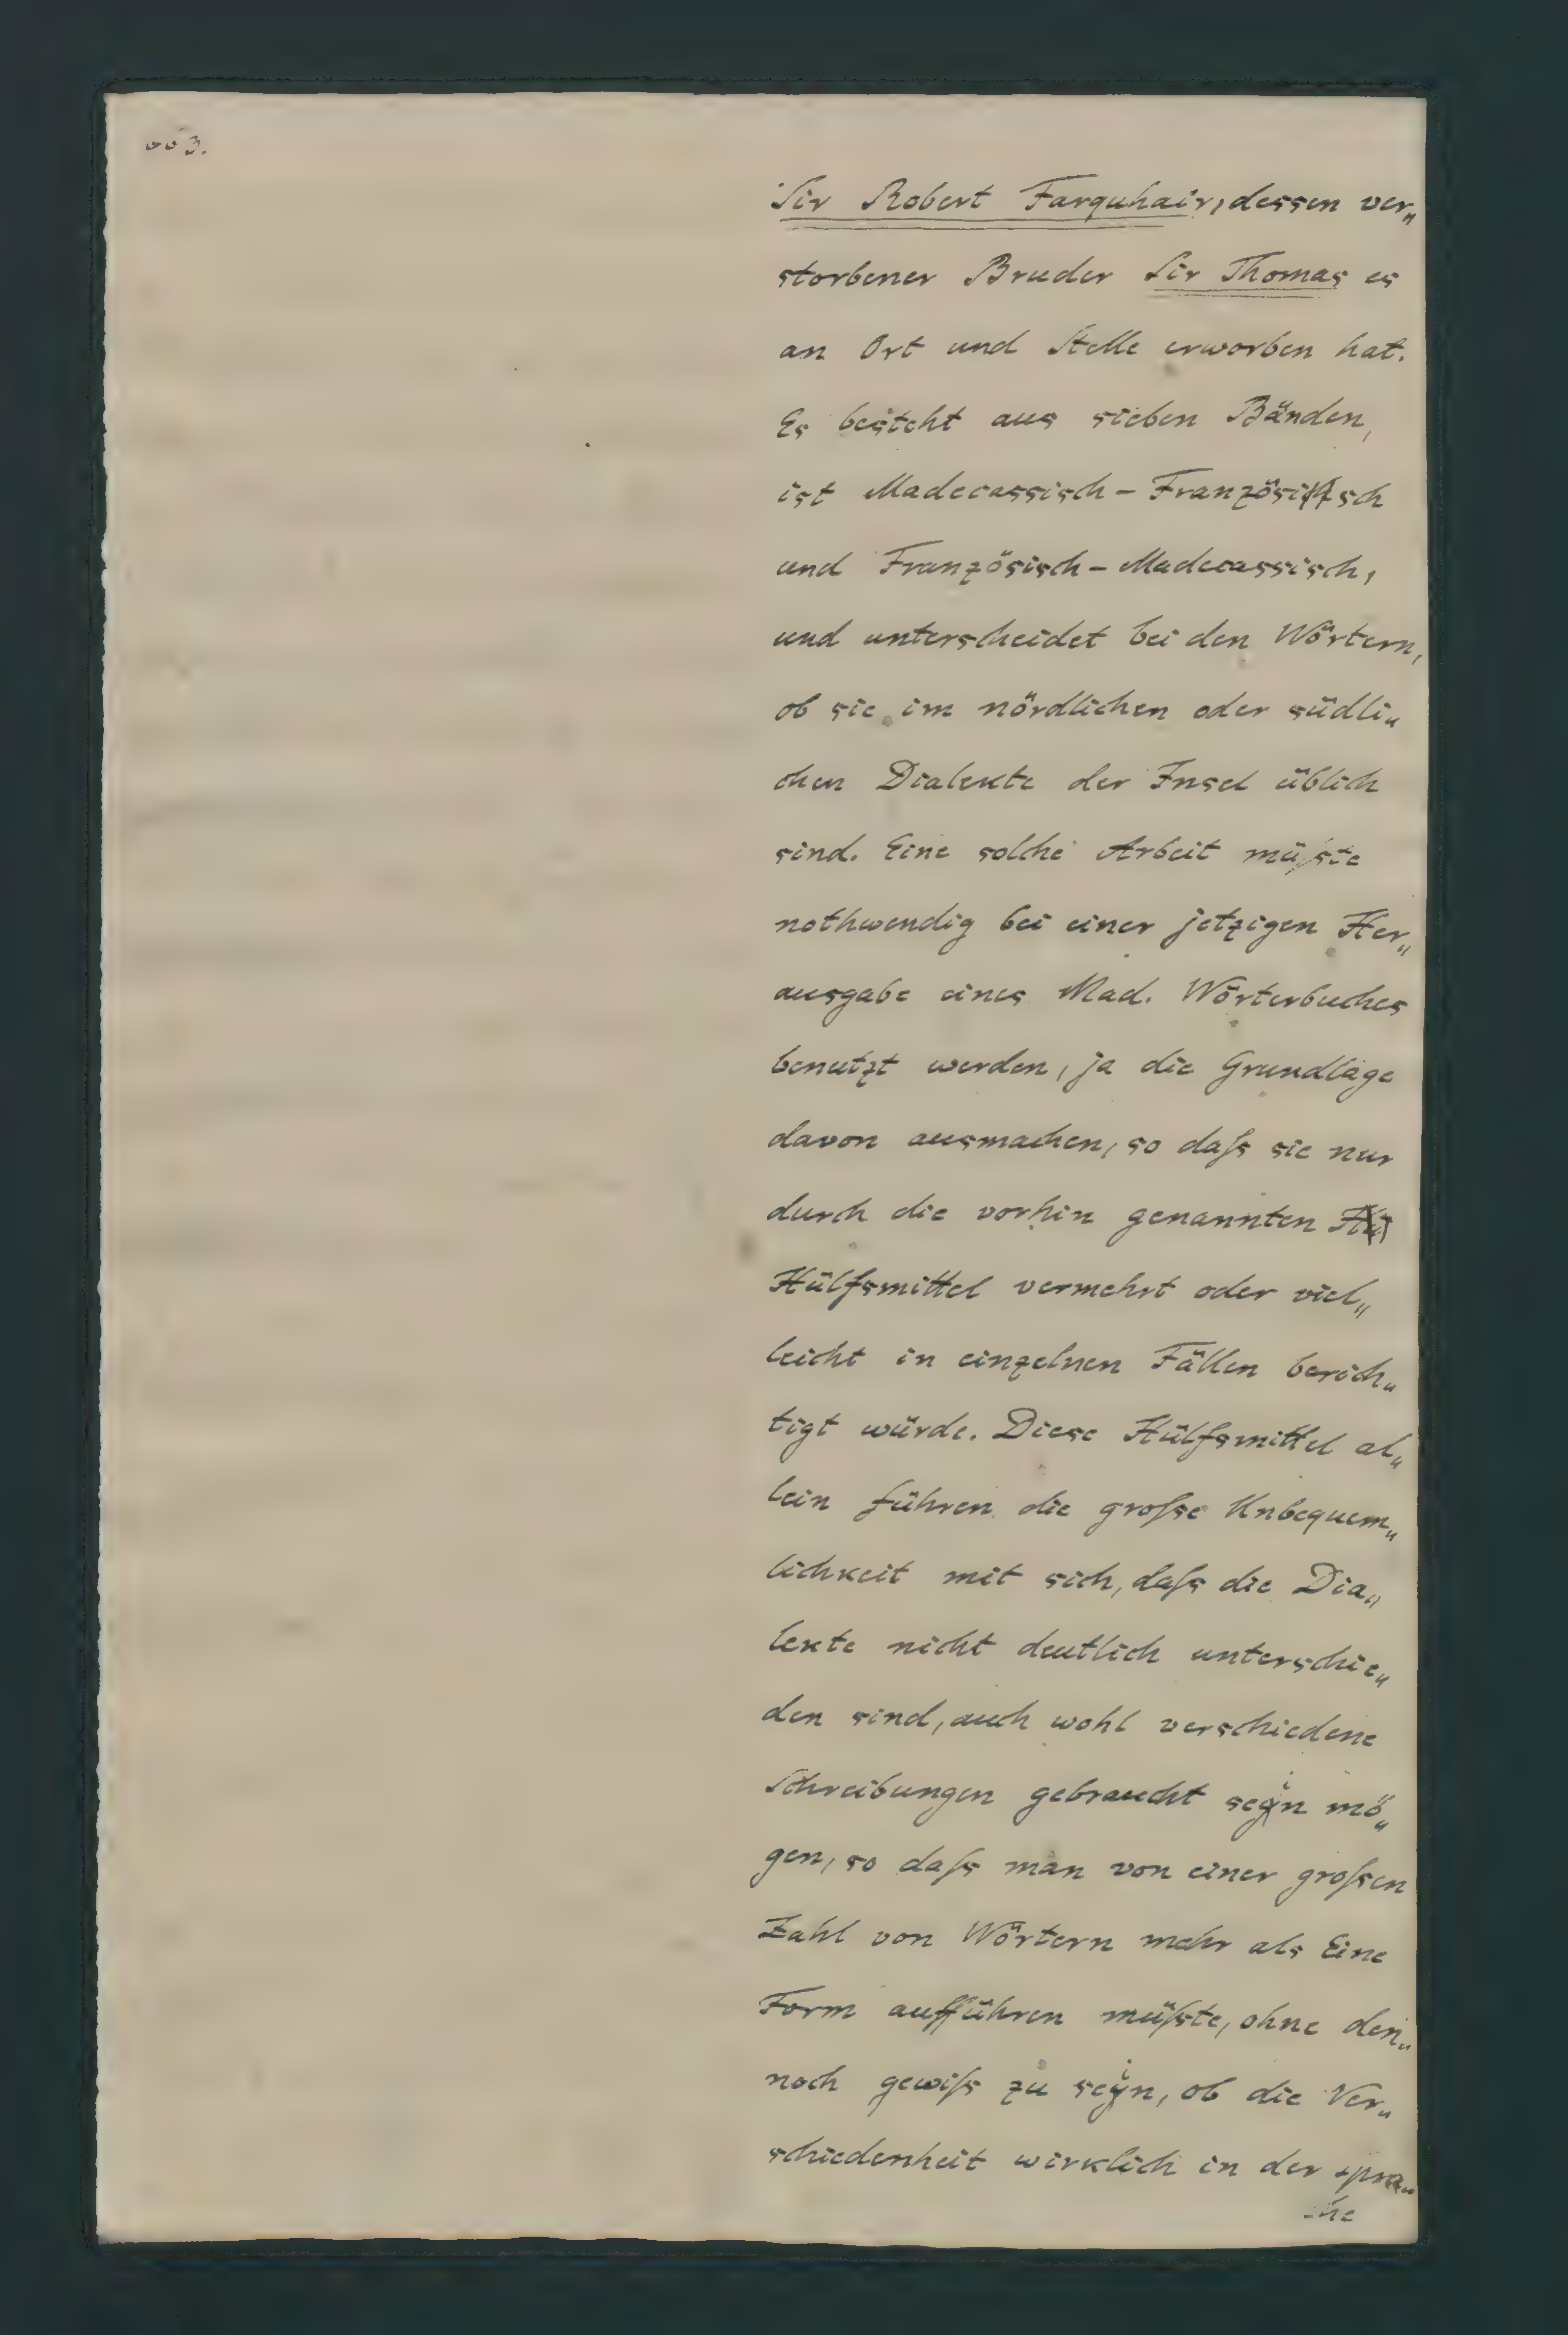 003.
Sir Robert Farquhair, dessen ver„
storbener Bruder Sir Thomas es
an Ort und Stelle erworben hat.
Es besteht aus sieben Bänden,
ist Madecassisch - Französisch
und Französisch - Madecassisch,
und unterscheidet bei den Wörtern,
ob sie im nördlichen oder südli„
chen Dialekte der Insel üblich
sind. Eine solche Arbeit müſste
nothwendig bei einer jetzigen Her„
ausgabe eines Mad. Wörterbuches
benutzt werden, ja die Grundlage
davon ausmachen, so daſs sie nur
durch die vorhin genannten
Hülfsmittel vermehrt oder viel„
leicht in einzelnen Fällen berich„
tigt würde. Diese Hülfsmittel al„
lein führen die groſse Unbequem„
lichkeit mit sich, daſs die Dia„
lekte nicht deutlich unterschie„
den sind, auch wohl verschiedene
Schreibungen gebraucht seyn mö„
gen, so daſs man von einer groſsen
Zahl von Wörtern mehr als Eine
Form aufführen müſste, ohne den„
noch gewiſs zu seyn, ob die Ver„
schiedenheit wirklich in der Spra„
che